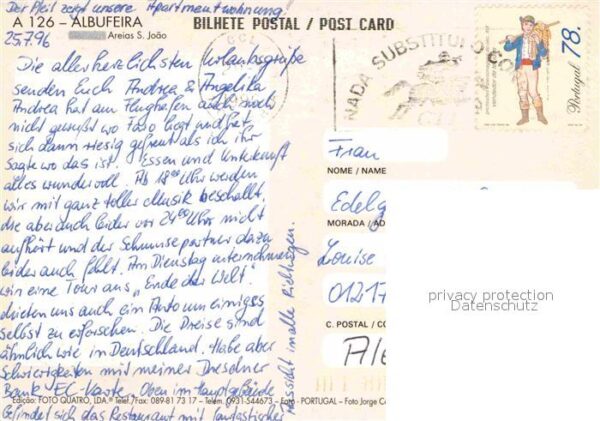 Der Pfeil zeigt unsere Apartmentwohnung
A 126 – ALBUFEIRA
Areias S. João
BILHETE POSTAL / POST CARD
25.7.96
Die allerherzlichsten Urlaubsgrüße
senden Euch Andrea & Angelika
Andrea hat am Flughafen auch noch
nicht gewußt wo Faro liegt und hat
sich dann riesig gefreut als ich ihr
sagte wo das ist. Essen und Unterkunft
alles wundervoll. Ab 18°° Uhr werden
wir mit ganz toller Musik beschallt,
die aber auch leider vor 24°° Uhr nicht
aufhört und der Schmusepartner dazu
leider auch fehlt. Am Dienstag unternahmen
wir eine Tour ans "Ende der Welt".
mieten uns auch ein Auto um einiges
selbst zu erforschen. Die Preise sind
ähnlich wie in Deutschland. Habe aber
Schwierigkeiten mit meiner Dresdner
Bank EC-Karte. Oben im Hauptgebäude
befindet sich das Restaurant mit fantastischer
Aussicht in alle Richtungen.
NADA SUBSTITUI O CO
CTT
Portugal
78.
Frau
NOME / NAME
Edelg
MORADA / AD
Louise
01217
C. POSTAL / CO
Ale
privacy protection
Datenschutz
Edição: FOTO QUATRO, LDA.ª Telef./Fax: 089-81 73 17 – Telem. 0931-544673 – Faro - PORTUGAL – Foto Jorge C